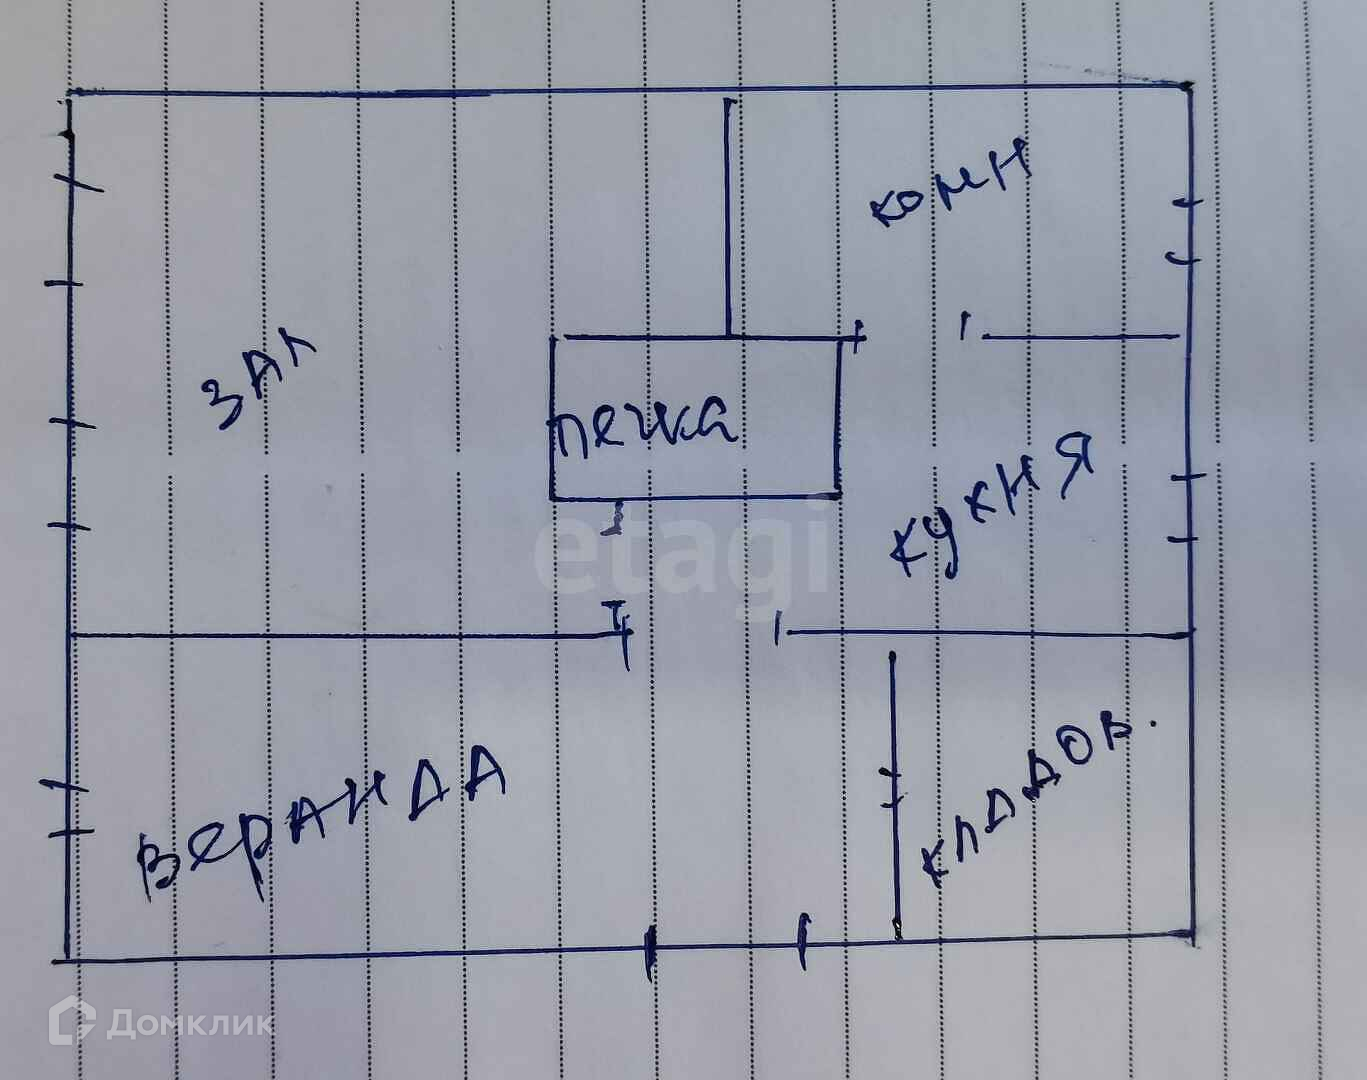 комн
зал
печка
кухня
etagi
веранда
кладов.
Домклик